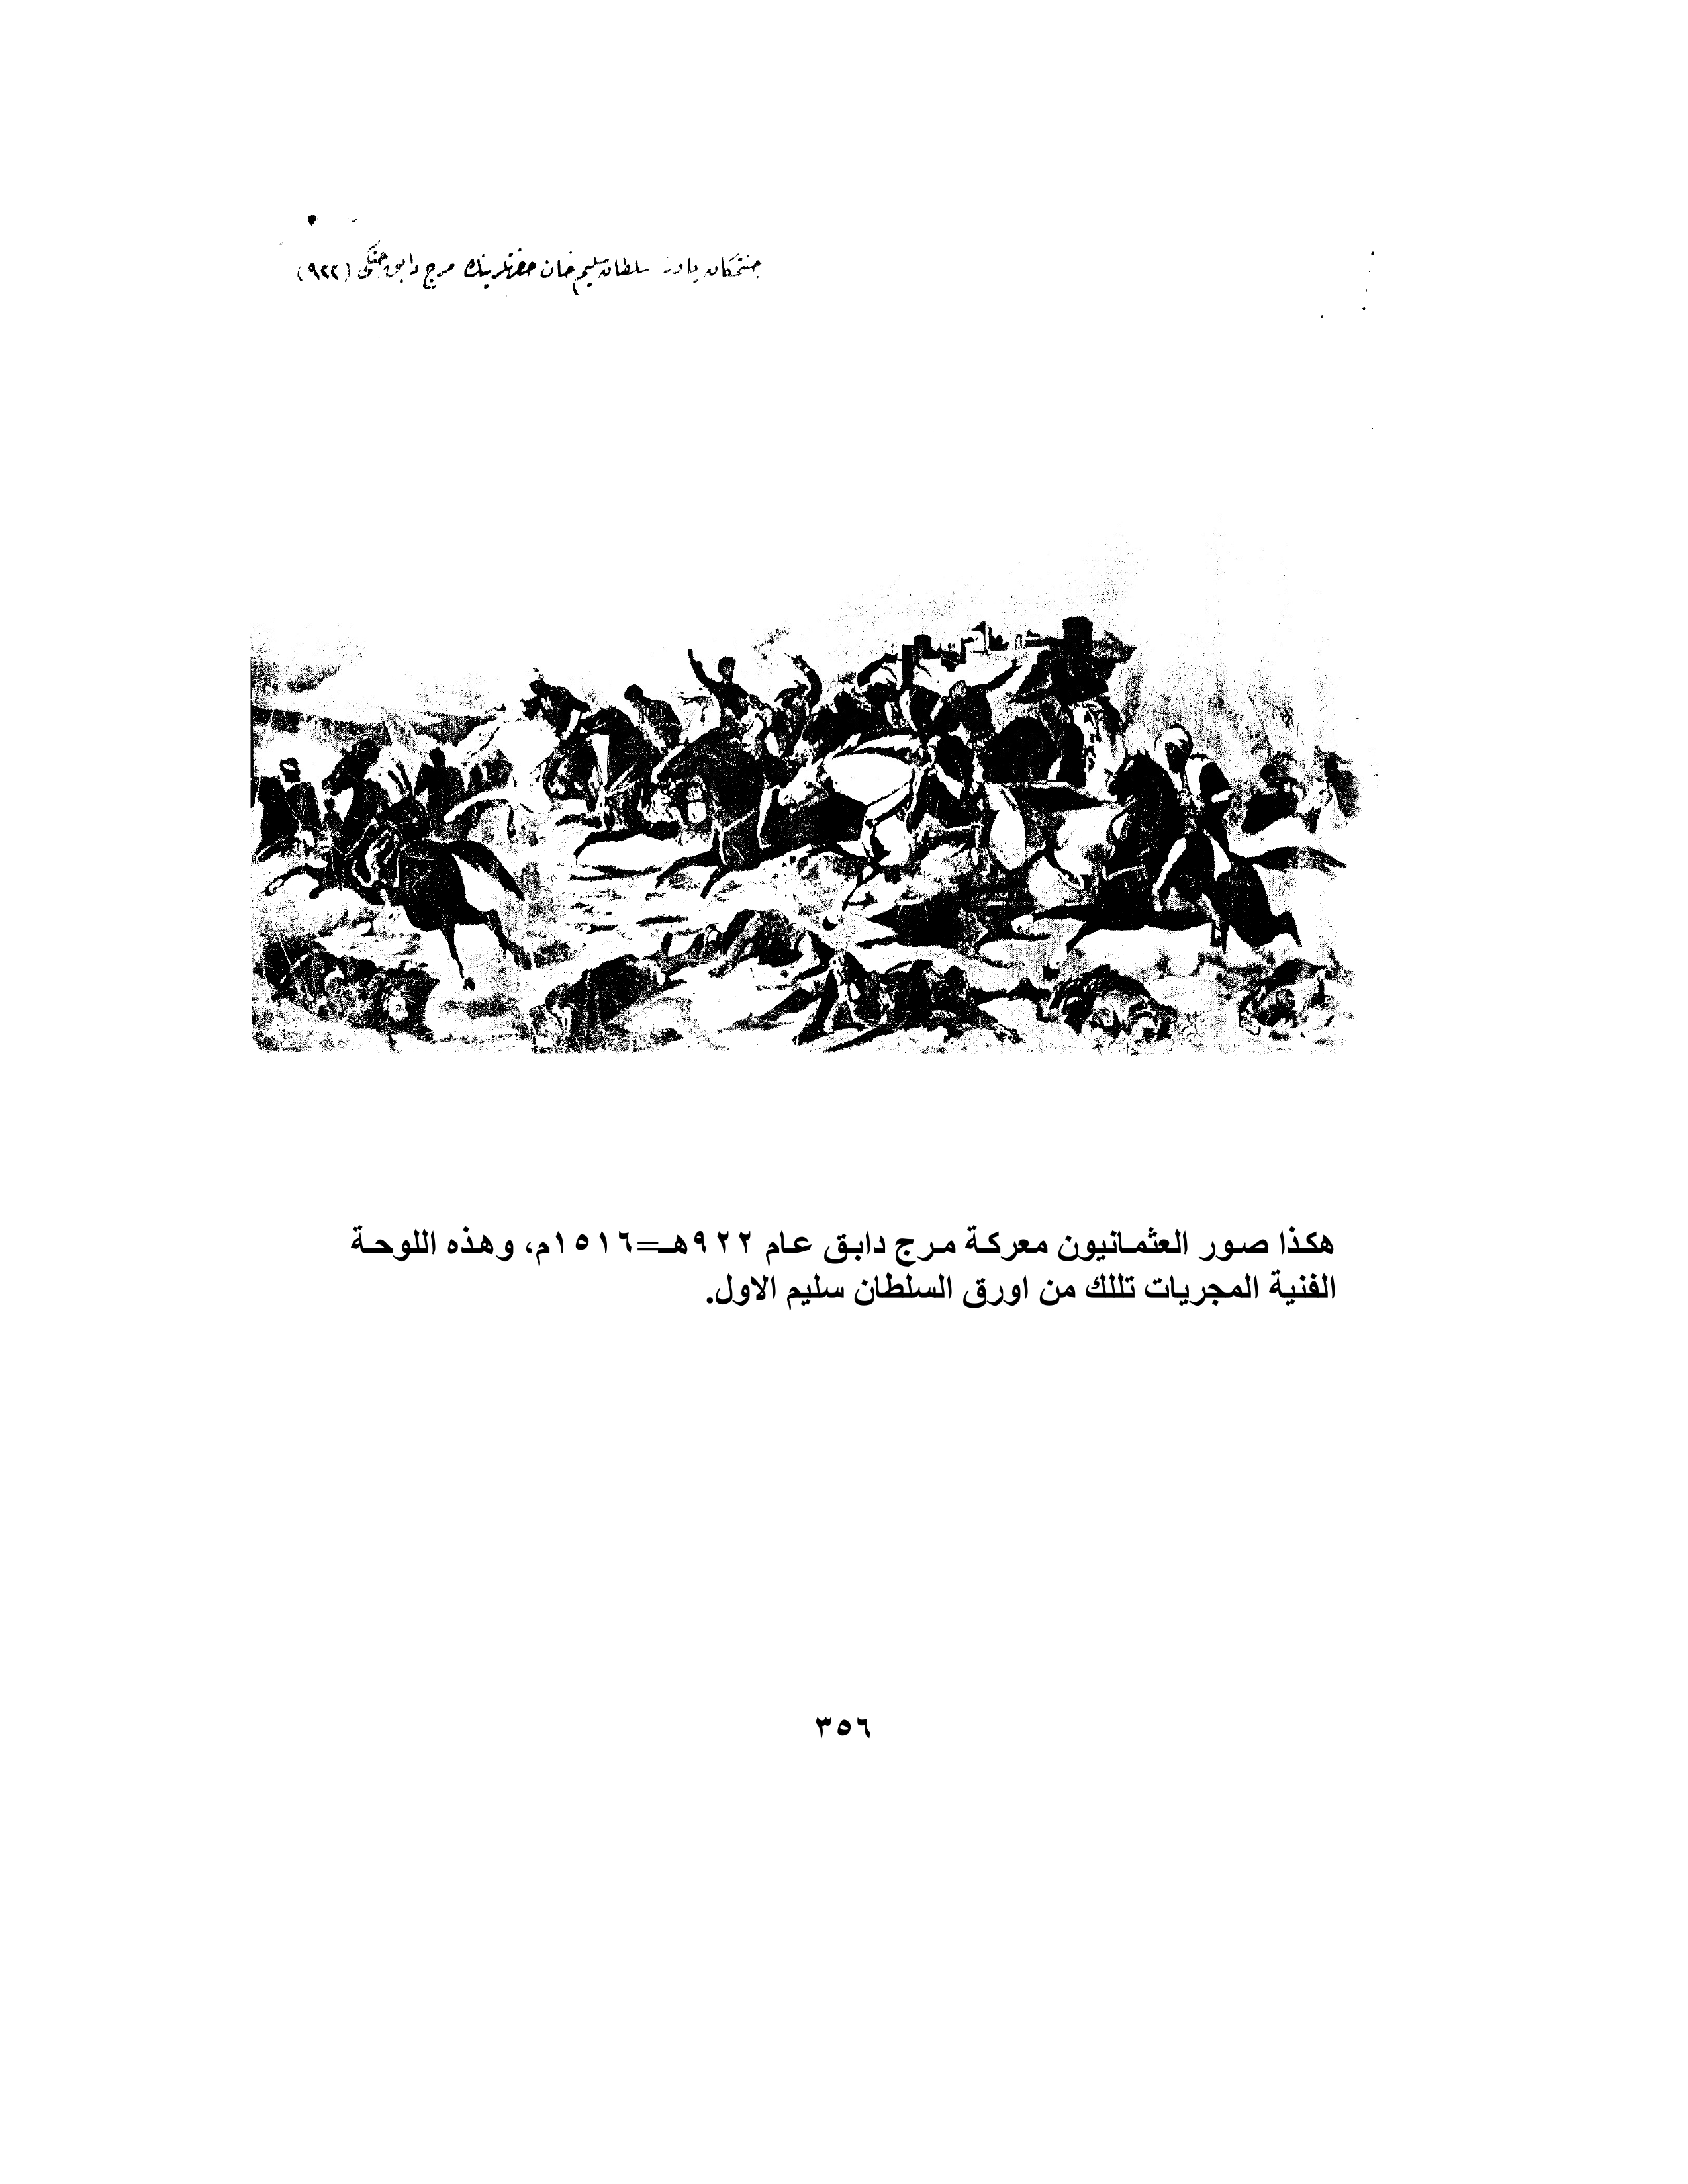 جنتمكان ياوز سلطان سليم خان حضرتلرينك مرج دابق جنكى (٩٢٢)
هكذا صور العثمانيون معركة مرج دابق عام ٩٢٢هـ=١٥١٦م، وهذه اللوحة
الفنية المجريات تللك من اورق السلطان سليم الاول.
٣٥٦